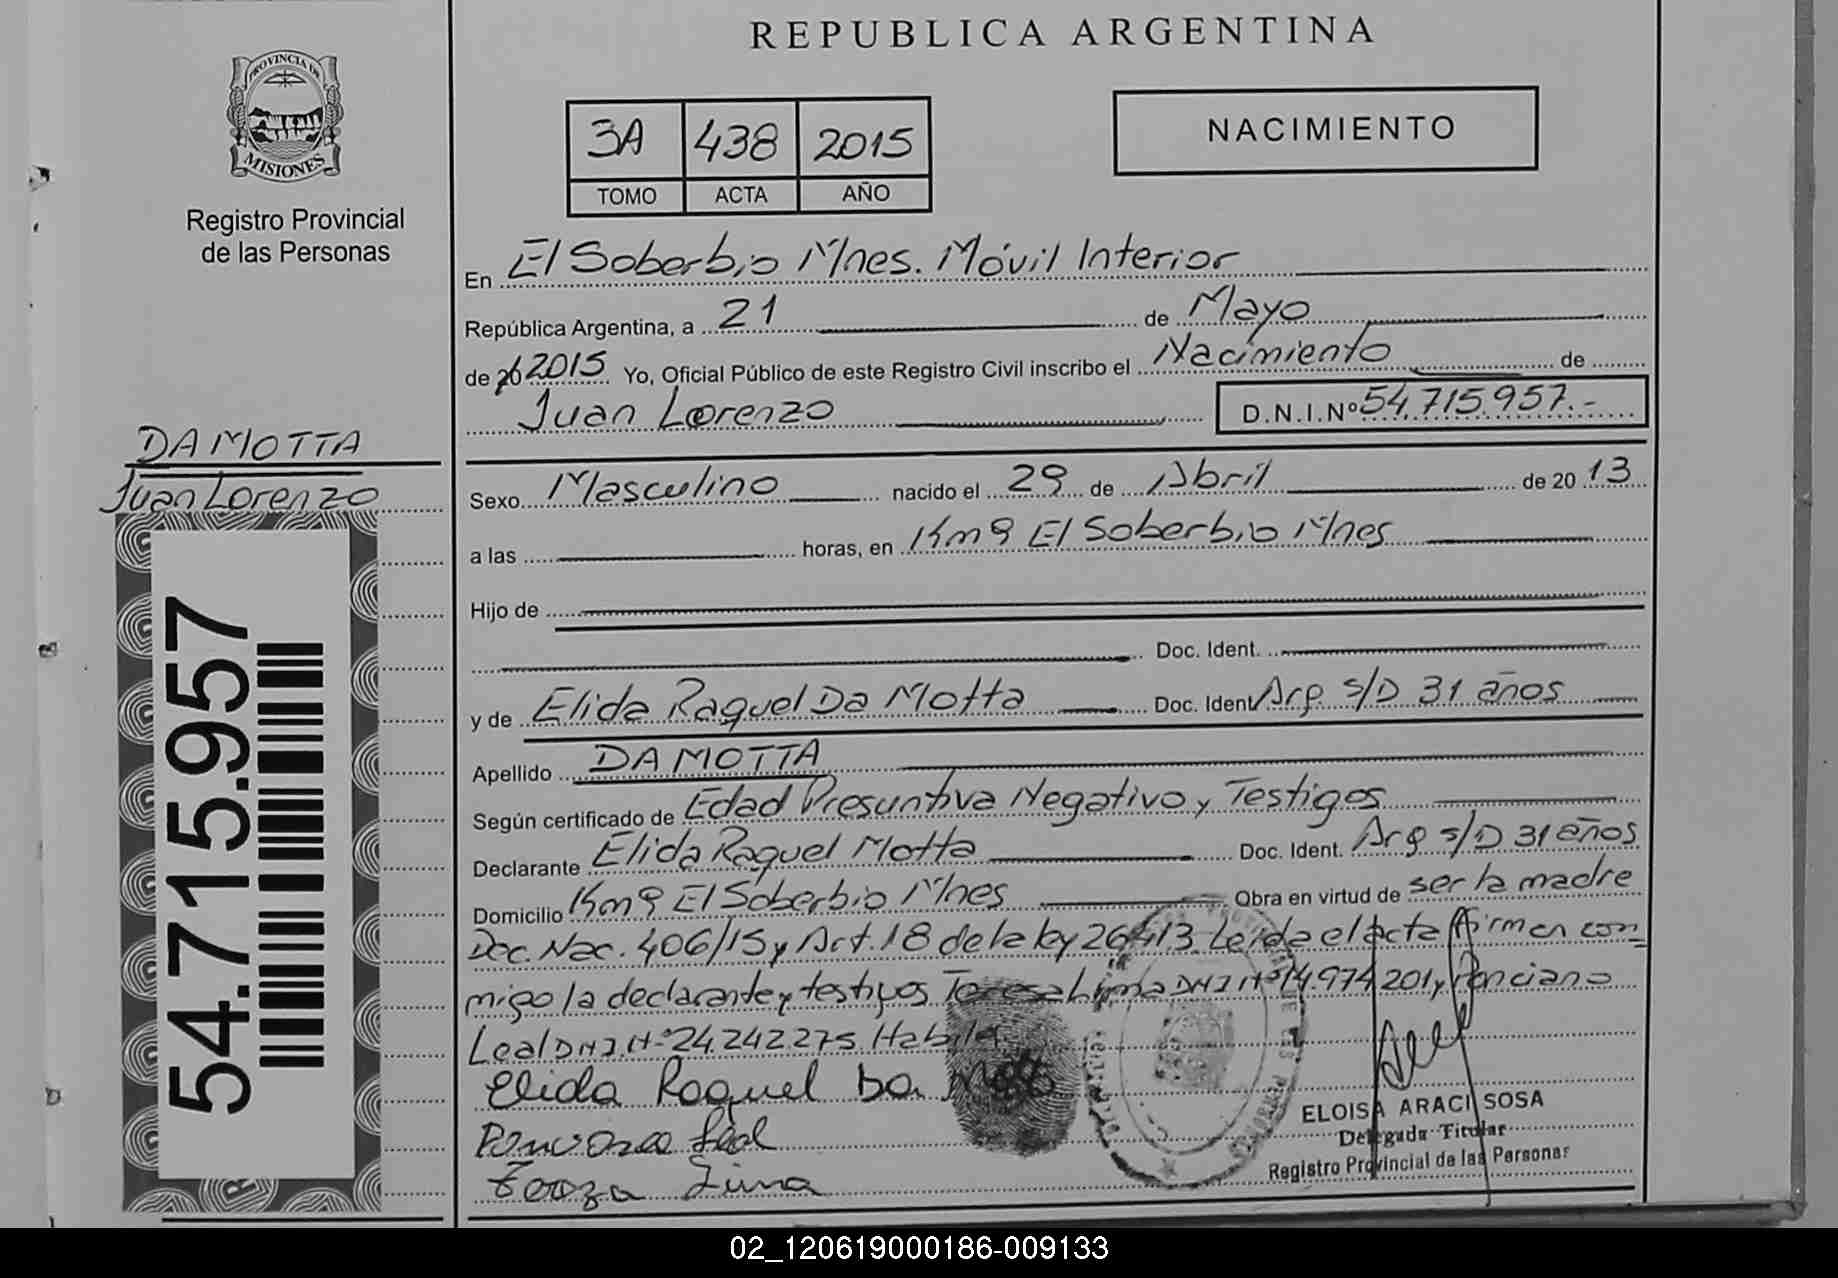 REPUBLICA ARGENTINA
PROVINCIA DE
MISIONES
Registro Provincial
de las Personas
3A 438 2015
TOMO ACTA AÑO
NACIMIENTO
En El Soberbio Mnes. Móvil Interior
República Argentina, a 21 de Mayo
de 2015 Yo, Oficial Público de este Registro Civil inscribo el Nacimiento de
Juan Lorenzo D.N.I.Nº 54.715.957.-
DA MOTTA
Juan Lorenzo
54.715.957
Sexo Masculino nacido el 29 de Abril de 2013
a las horas, en Km 9 El Soberbio Mnes
Hijo de
Doc. Ident.
y de Elida Raquel Da Motta Doc. Ident Arg. S/D 31 años
Apellido DA MOTTA
Según certificado de Edad Presuntiva Negativo y Testigos
Declarante Elida Raquel Motta Doc. Ident. Arg S/D 31 años
Domicilio Km 9 El Soberbio Mnes Obra en virtud de ser la madre
Dec. Nac. 406/15 y Art. 18 de la ley 26413 Leida el acta firman con=
migo la declarante y testigos Teresa Lima DNI Nº 14.974.201 y Ponciano
Leal DNI Nº 24.242.275. Habile
Elida Raquel Da Motta
Leal
Lima
ELOISA ARACI SOSA
Delegada Titular
Registro Provincial de las Personas
02_120619000186-009133